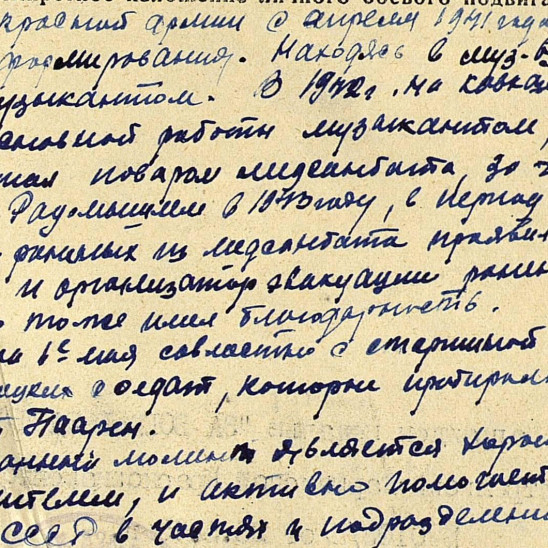 краткое изложение личного боевого подвига
красной армии с апреля 1941 года
формирования. Находясь в муз-в
музыкантом. В 1942 г. на кавказ
основной работы музыкантом,
поваром медсанбата, за
Радомышлем в 1943 году, в период
раненых из медсанбата прояви
и организатор эвакуации ранен
тоже имел благодарность.
на 1е мая совместно с старшиной
ецких солдат, которые
Паарен.
данный момент является хорош
ителем, и активно помогает
СССР в частях и подразделени